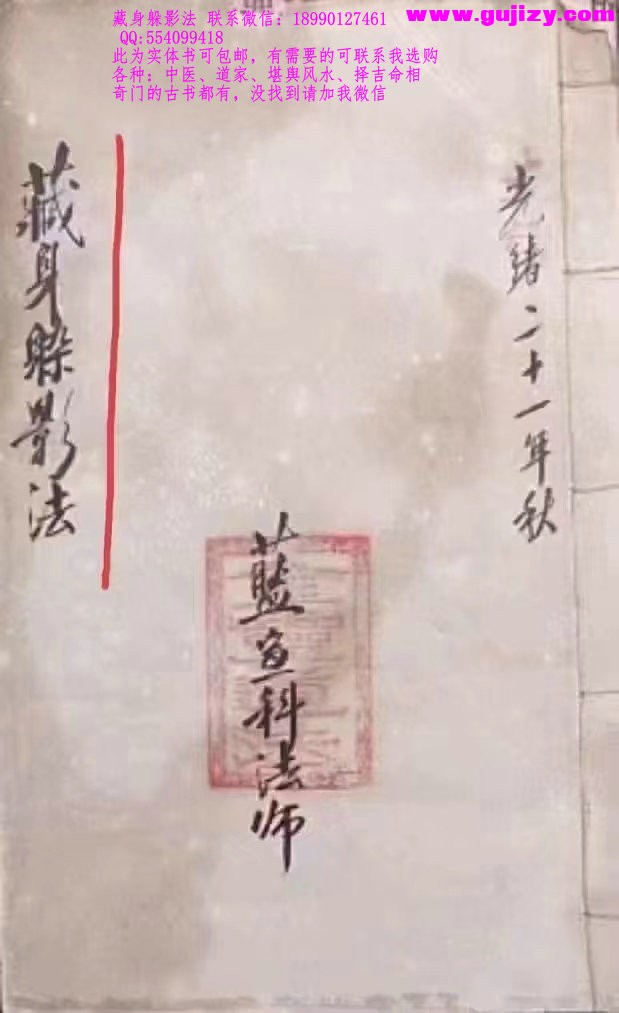 www.gujizy.com
藏身躲影法 联系微信：18990127461
QQ:554099418
此为实体书可包邮，有需要的可联系我选购
各种：中医、道家、堪舆风水、择吉命相
奇门的古书都有，没找到请加我微信
光緒二十一年秋
藍宣科法师
藏身躲影法